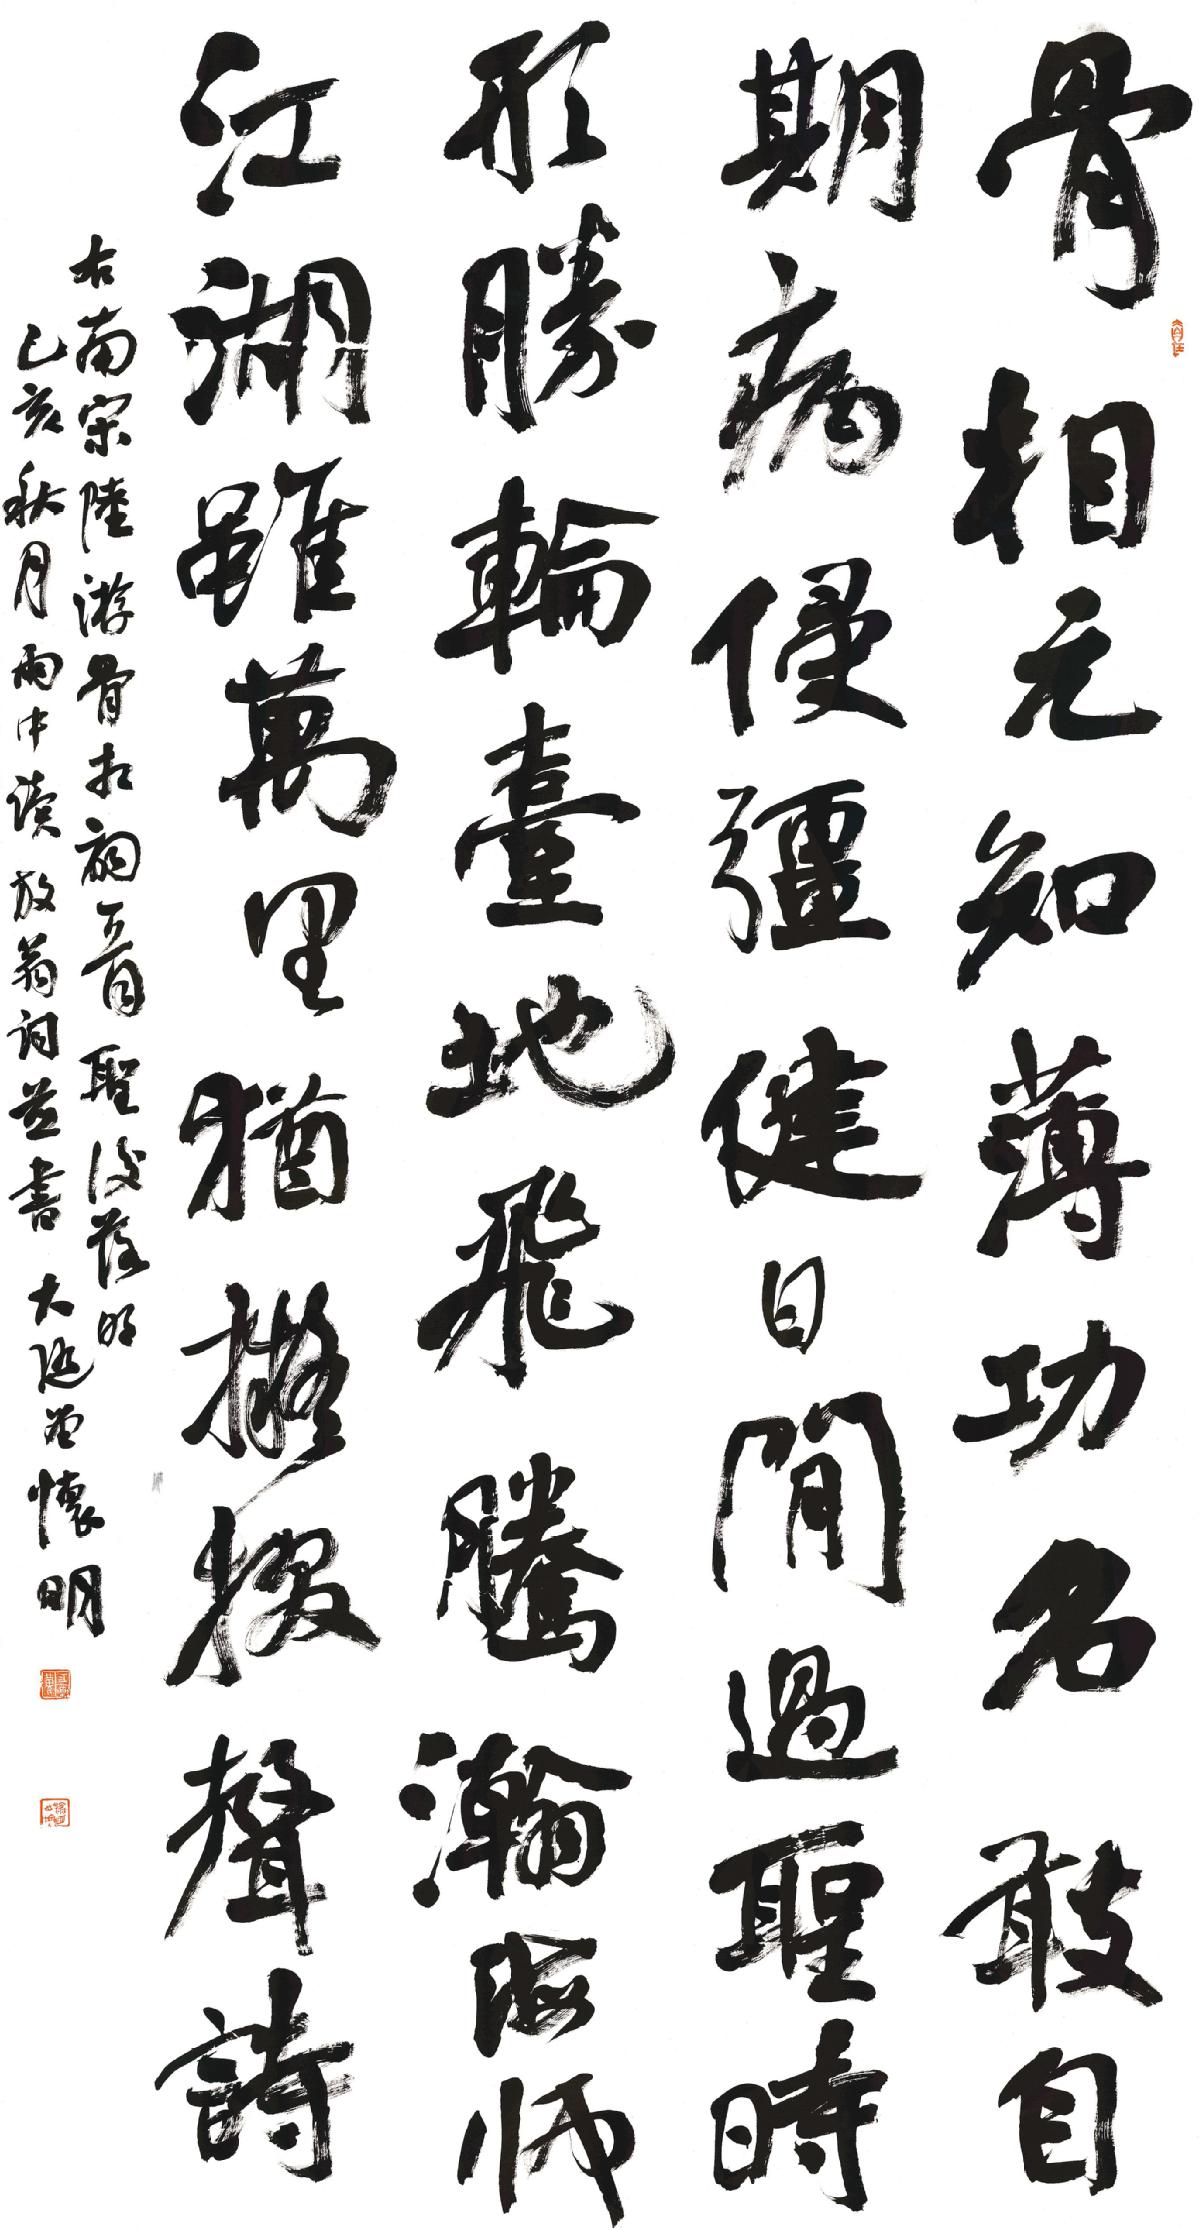 骨相元知薄功名敢自
期病侵彊健日閒過聖時
形勝輪臺地飛騰瀚海師
江湖雖萬里猶擬掇聲詩
右南宋陸游骨相詞一首聖後落明
己亥秋月雨中讀放翁詞並書大懷明